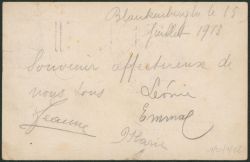 Blankenberghe le 15
Juillet 1913
Souvenir affectueux de
nous tous Léonie
Jeanne Emma
Marie